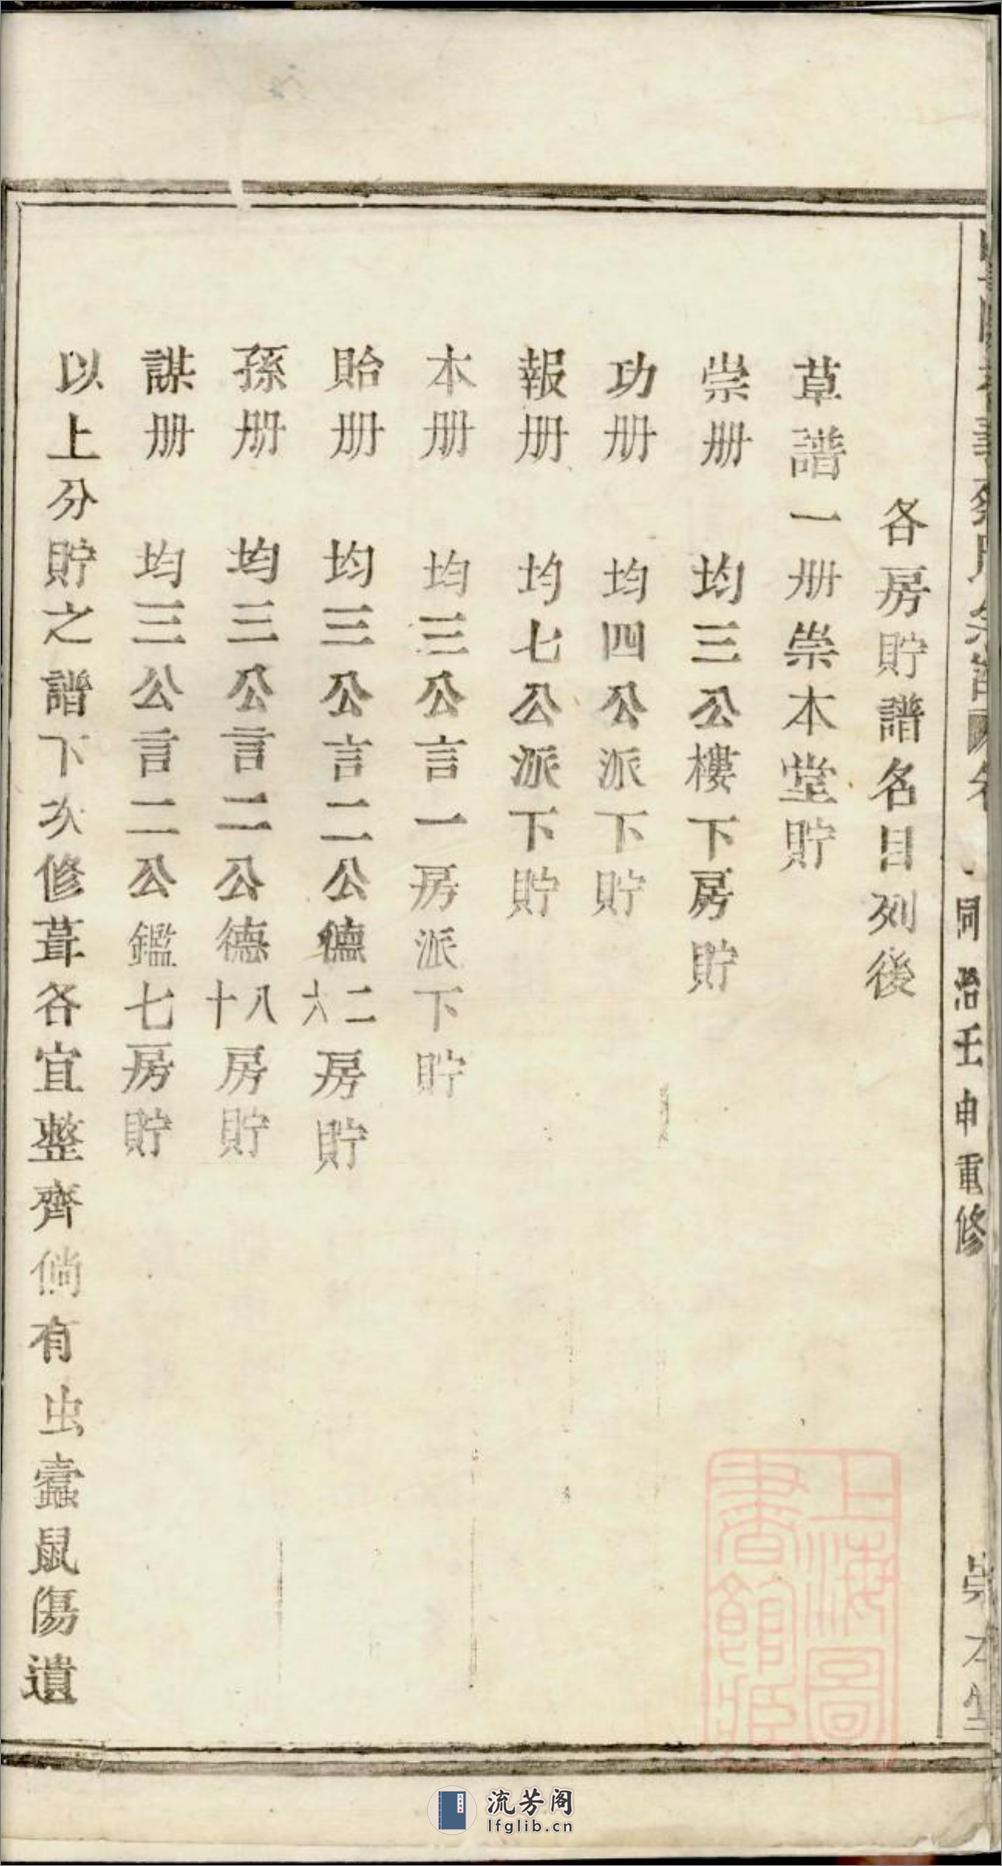 同治壬申重修
崇本堂
各房貯譜名目列後
草譜一册崇本堂貯
崇册 均三公樓下房貯
功册 均四公派下貯
報册 均七公派下貯
本册 均三公言一房派下貯
貽册 均三公言二公德二六房貯
孫册 均三公言二公德八十房貯
謀册 均三公言二公鑑七房貯
以上分貯之譜下次修葺各宜整齊倘有虫蠹鼠傷遺
上海圖書館藏
流芳阁
lfglib.cn